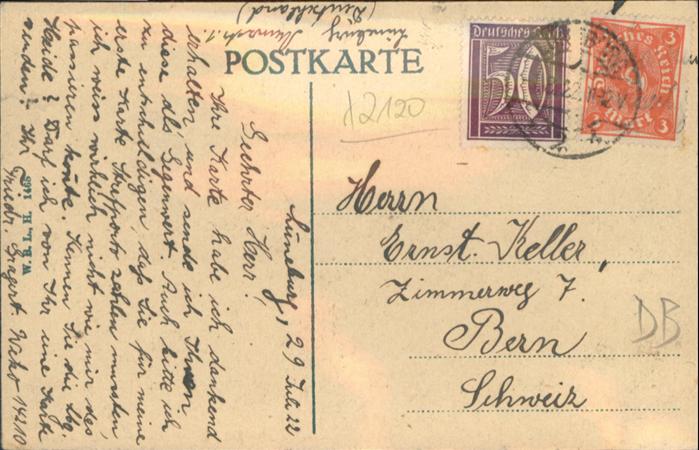 Lüneburg
(Deutschland)
POSTKARTE
Deutsches Reich
50
Deutsches Reich
3
3 Mark 3
x2120
Lüneburg, 29 Juli 22
Geehrter Herr!
Ihre Karte habe ich dankend
erhalten und sende ich Ihnen
diese als Gegenwert. Auch bitte ich
zu entschuldigen, daß Sie für meine
erste Karte Strafporto zahlen mussten
ich weiss wirklich nicht wie mir das
passieren konte. Kennen Sie die Lbg.
Heide? Darf ich von Ihr eine Karte
senden? Ihr
Friedr. 14210
Herrn
Ernst. Keller,
Zimmerweg 7.
Bern
Schweiz
DB
W. B. L., H. 1468